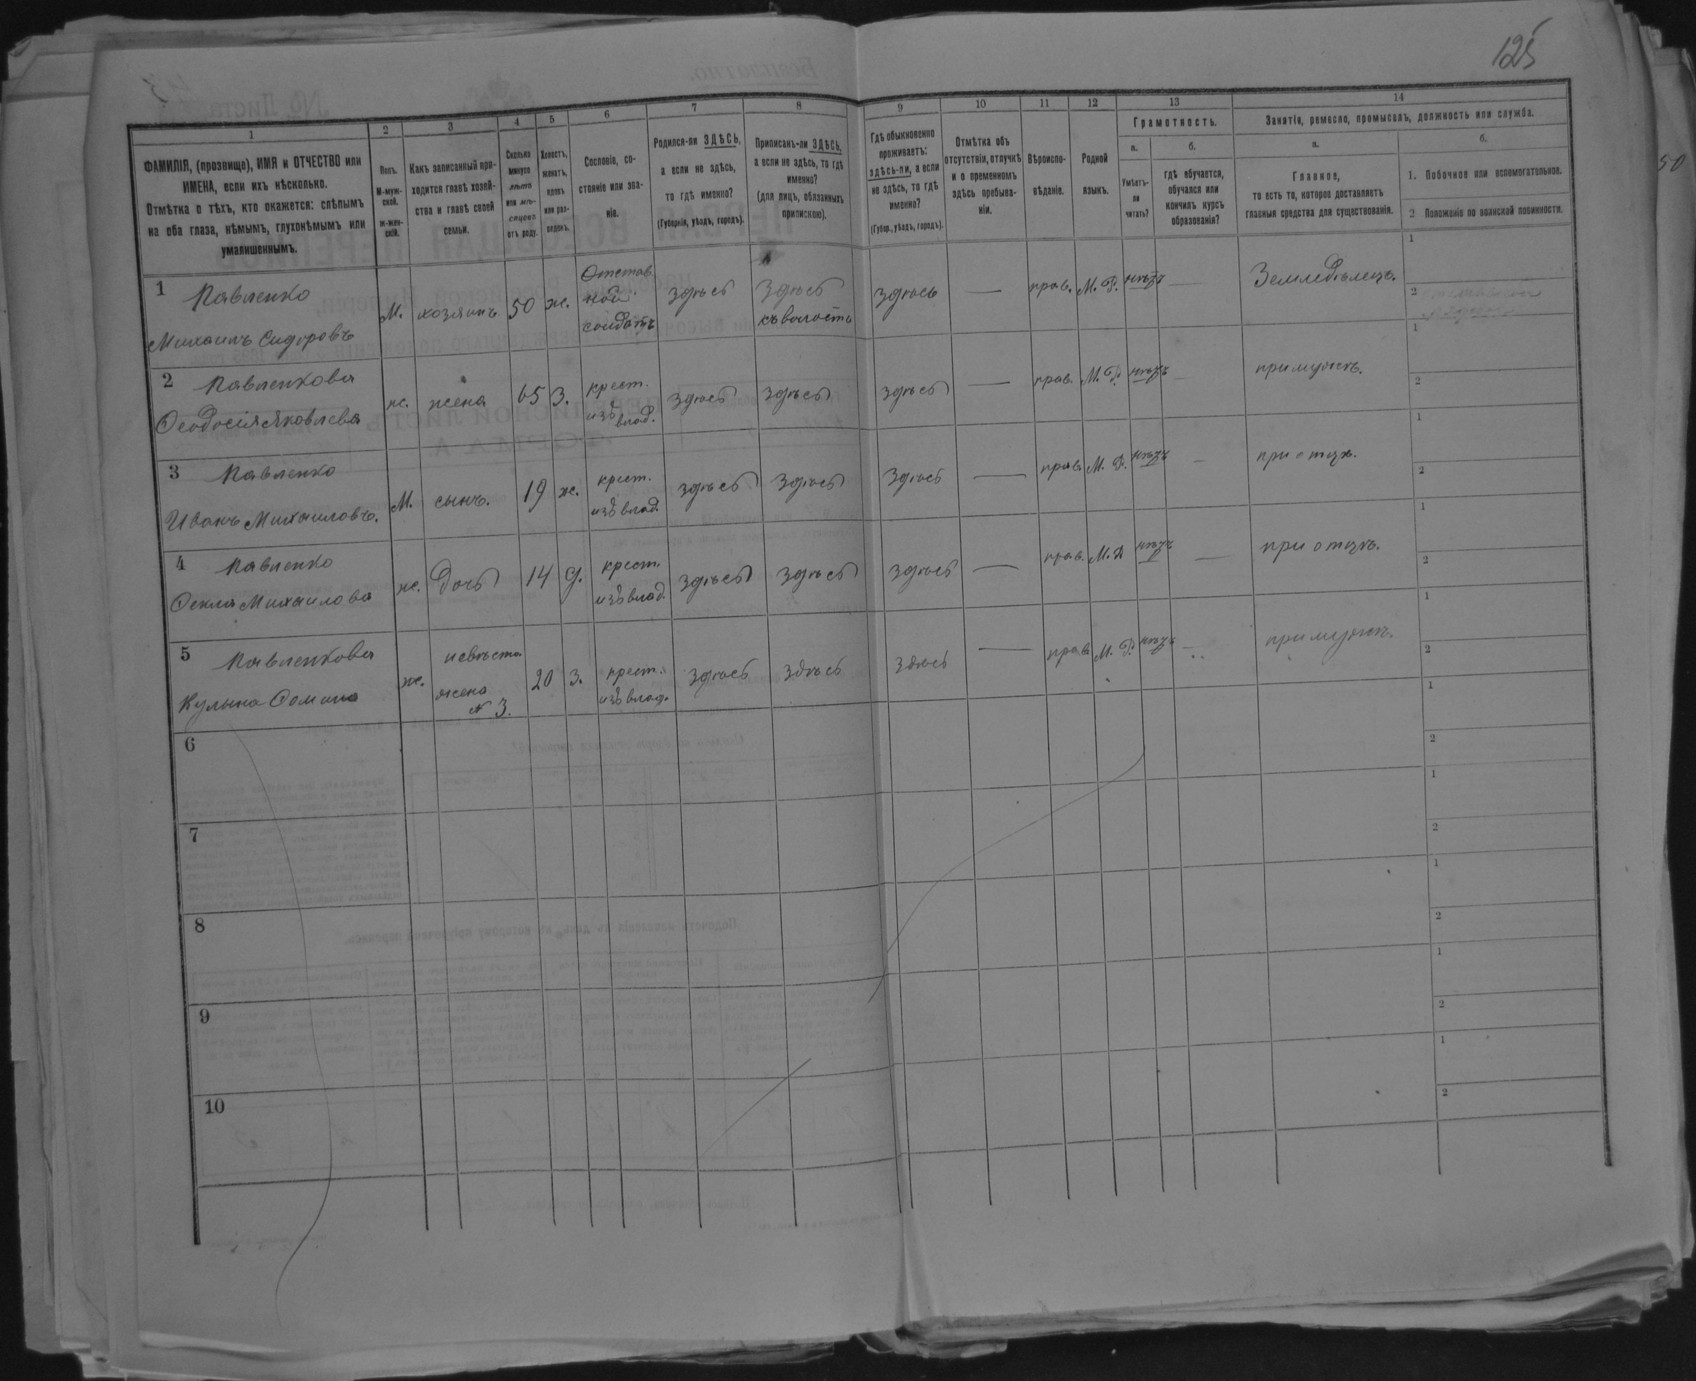 125
1
2
3
4
5
6
7
8
9
10
11
12
13
14
ФАМИЛІЯ, (прозвище), ИМЯ и ОТЧЕСТВО или
ИМЕНА, если ихъ нѣсколько.
Отмѣтка о тѣхъ, кто окажется: слѣпымъ
на оба глаза, нѣмымъ, глухонѣмымъ или
умалишеннымъ.
Полъ.
М-муж-
ской.
Ж-жен-
скій.
Какъ записанный при-
ходится главѣ хозяй-
ства и главѣ своей
семьи.
Сколько
минуло
лѣтъ
или мѣ-
сяцевъ
отъ роду.
Холостъ,
женатъ,
вдовъ
или раз-
веденъ.
Сословіе, со-
стояніе или зва-
ніе.
Родился-ли ЗДѢСЬ,
а если не здѣсь,
то гдѣ именно?
(Губернія, уѣздъ, городъ).
Приписанъ-ли ЗДѢСЬ,
а если не здѣсь, то гдѣ
именно?
(для лицъ, обязанныхъ
припискою).
Гдѣ обыкновенно
проживаетъ:
здѣсь-ли, а если
не здѣсь, то гдѣ
именно?
(Губер., уѣздъ, городъ).
Отмѣтка объ
отсутствіи, отлучкѣ
и о временномъ
здѣсь пребыва-
ніи.
Вѣроиспо-
вѣданіе.
Родной
языкъ.
Грамотность.
а.
б.
Умѣетъ-
ли
читать?
гдѣ обучается,
обучался или
кончилъ курсъ
образованія?
Занятіе, ремесло, промыселъ, должность или служба.
а.
б.
Главное,
то есть то, которое доставляетъ
главныя средства для существованія.
1. Побочное или вспомогательное.
2 Положеніе по воинской повинности.
1 Павленко
Михаилъ Сидоровъ
М. хозяинъ 50 ж.
Отстав
ной
солдатъ
здѣсь
Здѣсь
къ волости
здѣсь — прав. М. Р. нѣтъ — Земледѣлецъ.
1
2
2 Павленкова
Ѳеодосія Яковлева
ж. жена 3.
крест.
изъ влад.
здѣсь здѣсь здѣсь — прав. М. Р. нѣтъ — при мужѣ.
1
2
3 Павленко
Иванъ Михаиловъ.
М. сынъ. 19 ж.
крест.
изъ влад.
здѣсь здѣсь здѣсь — прав. М. Р. нѣтъ — при отцѣ.
1
2
4 Павленко
Ѳекла Михаилова
ж. дочь 14 д.
крест.
изъ влад.
здѣсь здѣсь здѣсь — прав. М. Р. нѣтъ — при отцѣ.
1
2
5 Павленкова
Кулына Ѳомина
ж.
невѣста
жена
№ 3.
20 3.
крест.
изъ влад.
здѣсь здѣсь здѣсь — прав. М. Р. нѣтъ — при мужѣ.
1
2
6
1
2
7
1
2
8
1
2
9
1
2
10
1
2
50